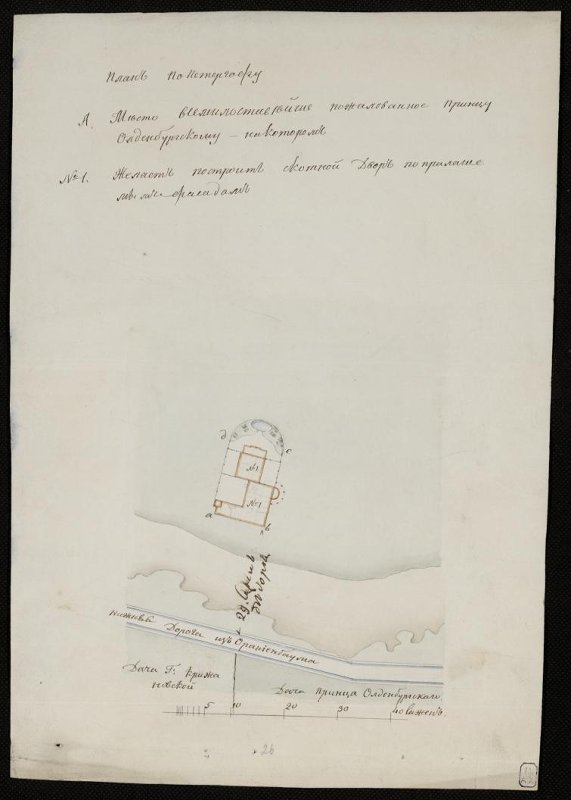 Планъ По Петергофу
А. Место всемилостивейше пожалованное Принцу
Олденбургскому – на которомъ
№ 1. Желаетъ построить скотной Дворъ по прилагае
фасадамъ
д
с
№1
№1
а
в
29. Сажень
Дорога изъ Ораніенбаума
Дача Г: Крижа
новской
Дача Принца Олденбургскаго
5 10 20 30 40 сажень.
26